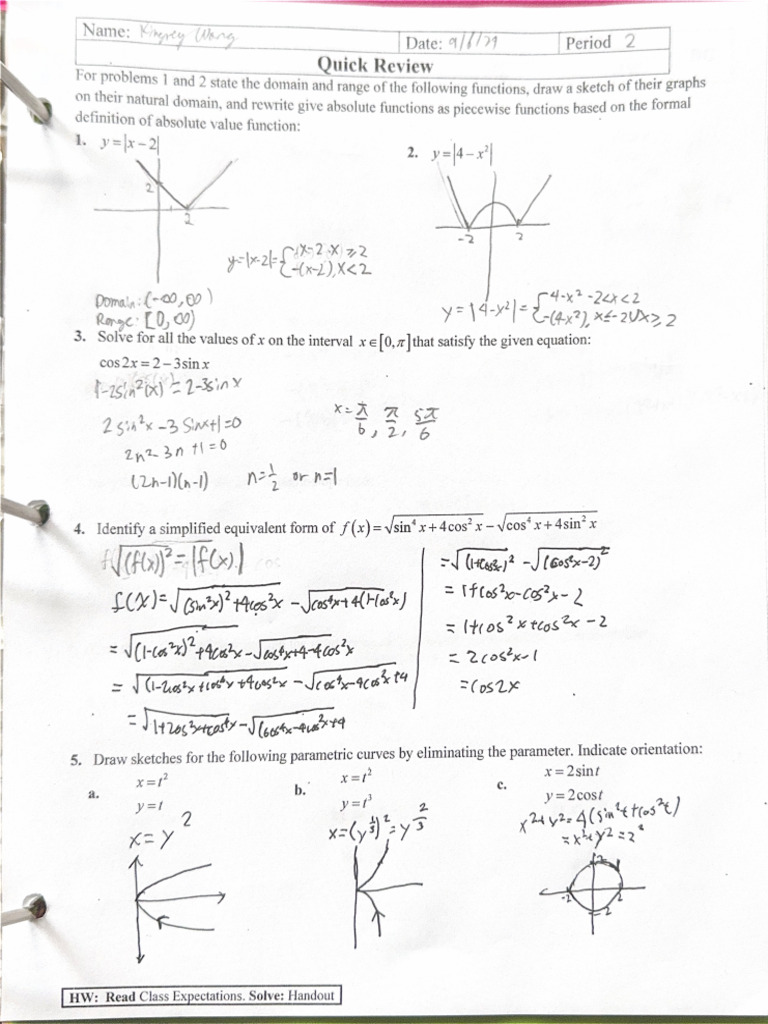 Name: Kingrey Wang
Date: 9/6/29
Period 2
Quick Review
For problems 1 and 2 state the domain and range of the following functions, draw a sketch of their graphs
on their natural domain, and rewrite give absolute functions as piecewise functions based on the formal
definition of absolute value function:
1. y=|x-2|
2
2
y=|x-2|={x-2 x≥2
-(x-2), x<2
Domain: (-∞,∞)
Range: [0,∞)
2. y=|4-x²|
-2 2
y=|4-x²|={4-x² -2<x<2
-(4-x²), x≤-2Ux≥2
3. Solve for all the values of x on the interval x∈[0,π] that satisfy the given equation:
cos2x=2-3sinx
1-2sin²(x)=2-3sinx
2sin²x-3sinx+1=0
2n²-3n+1=0
(2n-1)(n-1) n=1/2 or n=1
x=π/6, π/2, 5π/6
4. Identify a simplified equivalent form of f(x)=√(sin⁴x+4cos²x)-√(cos⁴x+4sin²x)
√(f(x))²=|f(x)|
f(x)=√((sin²x)²+4cos²x)-√(cos⁴x+4(1-cos²x))
=√((1-cos²x)²+4cos²x)-√(cos⁴x+4-4cos²x)
=√(1-2cos²x+cos⁴x+4cos²x)-√(cos⁴x-4cos²x+4)
=√(1+2cos²x+cos⁴x)-√(cos⁴x-4cos²x+4)
=√(1+cos²x)²-√(cos²x-2)²
=1+cos²x-cos²x-2
=1+cos²x+cos²x-2
=2cos²x-1
=cos2x
5. Draw sketches for the following parametric curves by eliminating the parameter. Indicate orientation:
a. x=t²
y=t
x=y²
b. x=t²
y=t³
x=(y^(1/3))²=y^(2/3)
c. x=2sint
y=2cost
x²+y²=4(sin²t+cos²t)
=x²+y²=2²
2
-2 2
-2
HW: Read Class Expectations. Solve: Handout